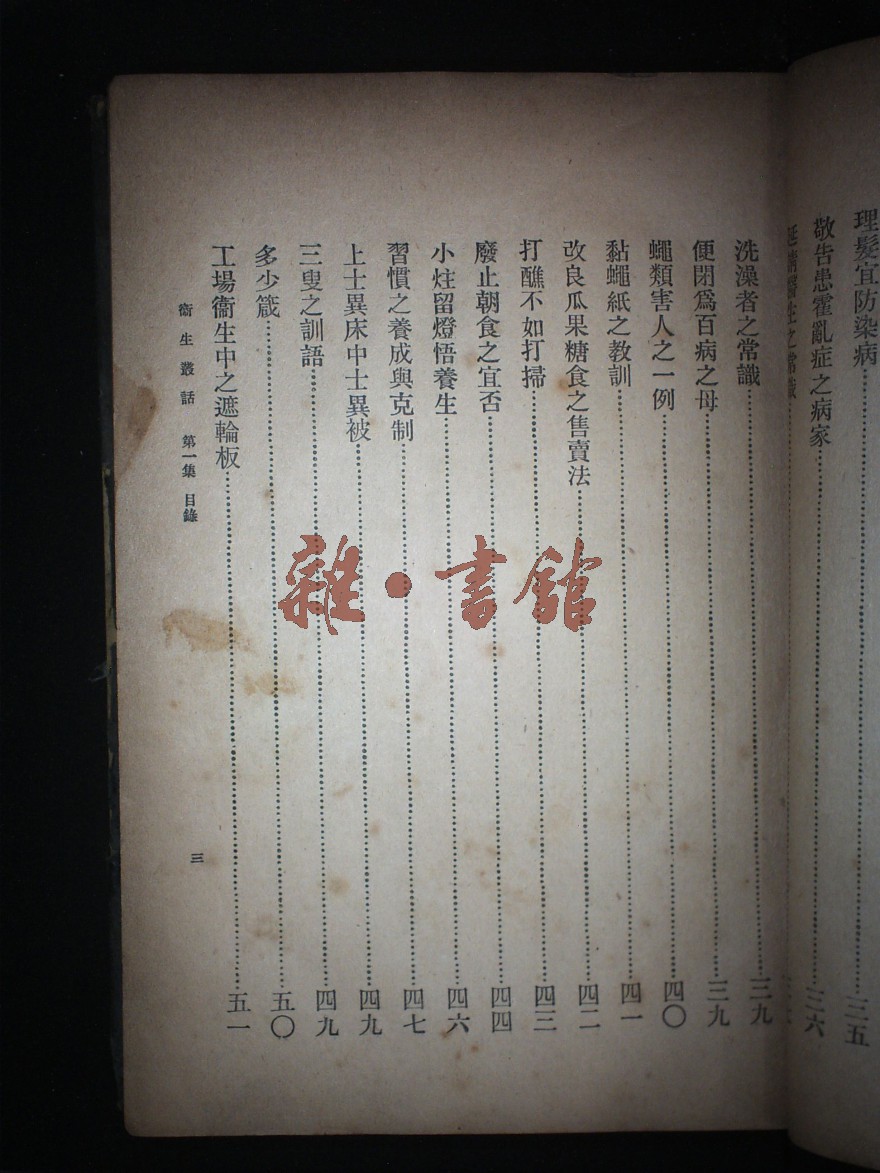 理髮宜防染病……三五
敬告患霍亂症之病家……三六
延請醫生之常識……三
洗澡者之常識……三九
便閉爲百病之母……三九
蠅類害人之一例……四〇
黏蠅紙之教訓……四一
改良瓜果糖食之售賣法……四二
打醮不如打掃……四三
廢止朝食之宜否……四四
小炷留燈悟養生……四六
習慣之養成與克制……四七
上士異床中士異被……四九
三叟之訓語……四九
多少箴……五〇
工場衞生中之遮輪板……五一
衞生叢話 第一集 目錄 三
雜·書館